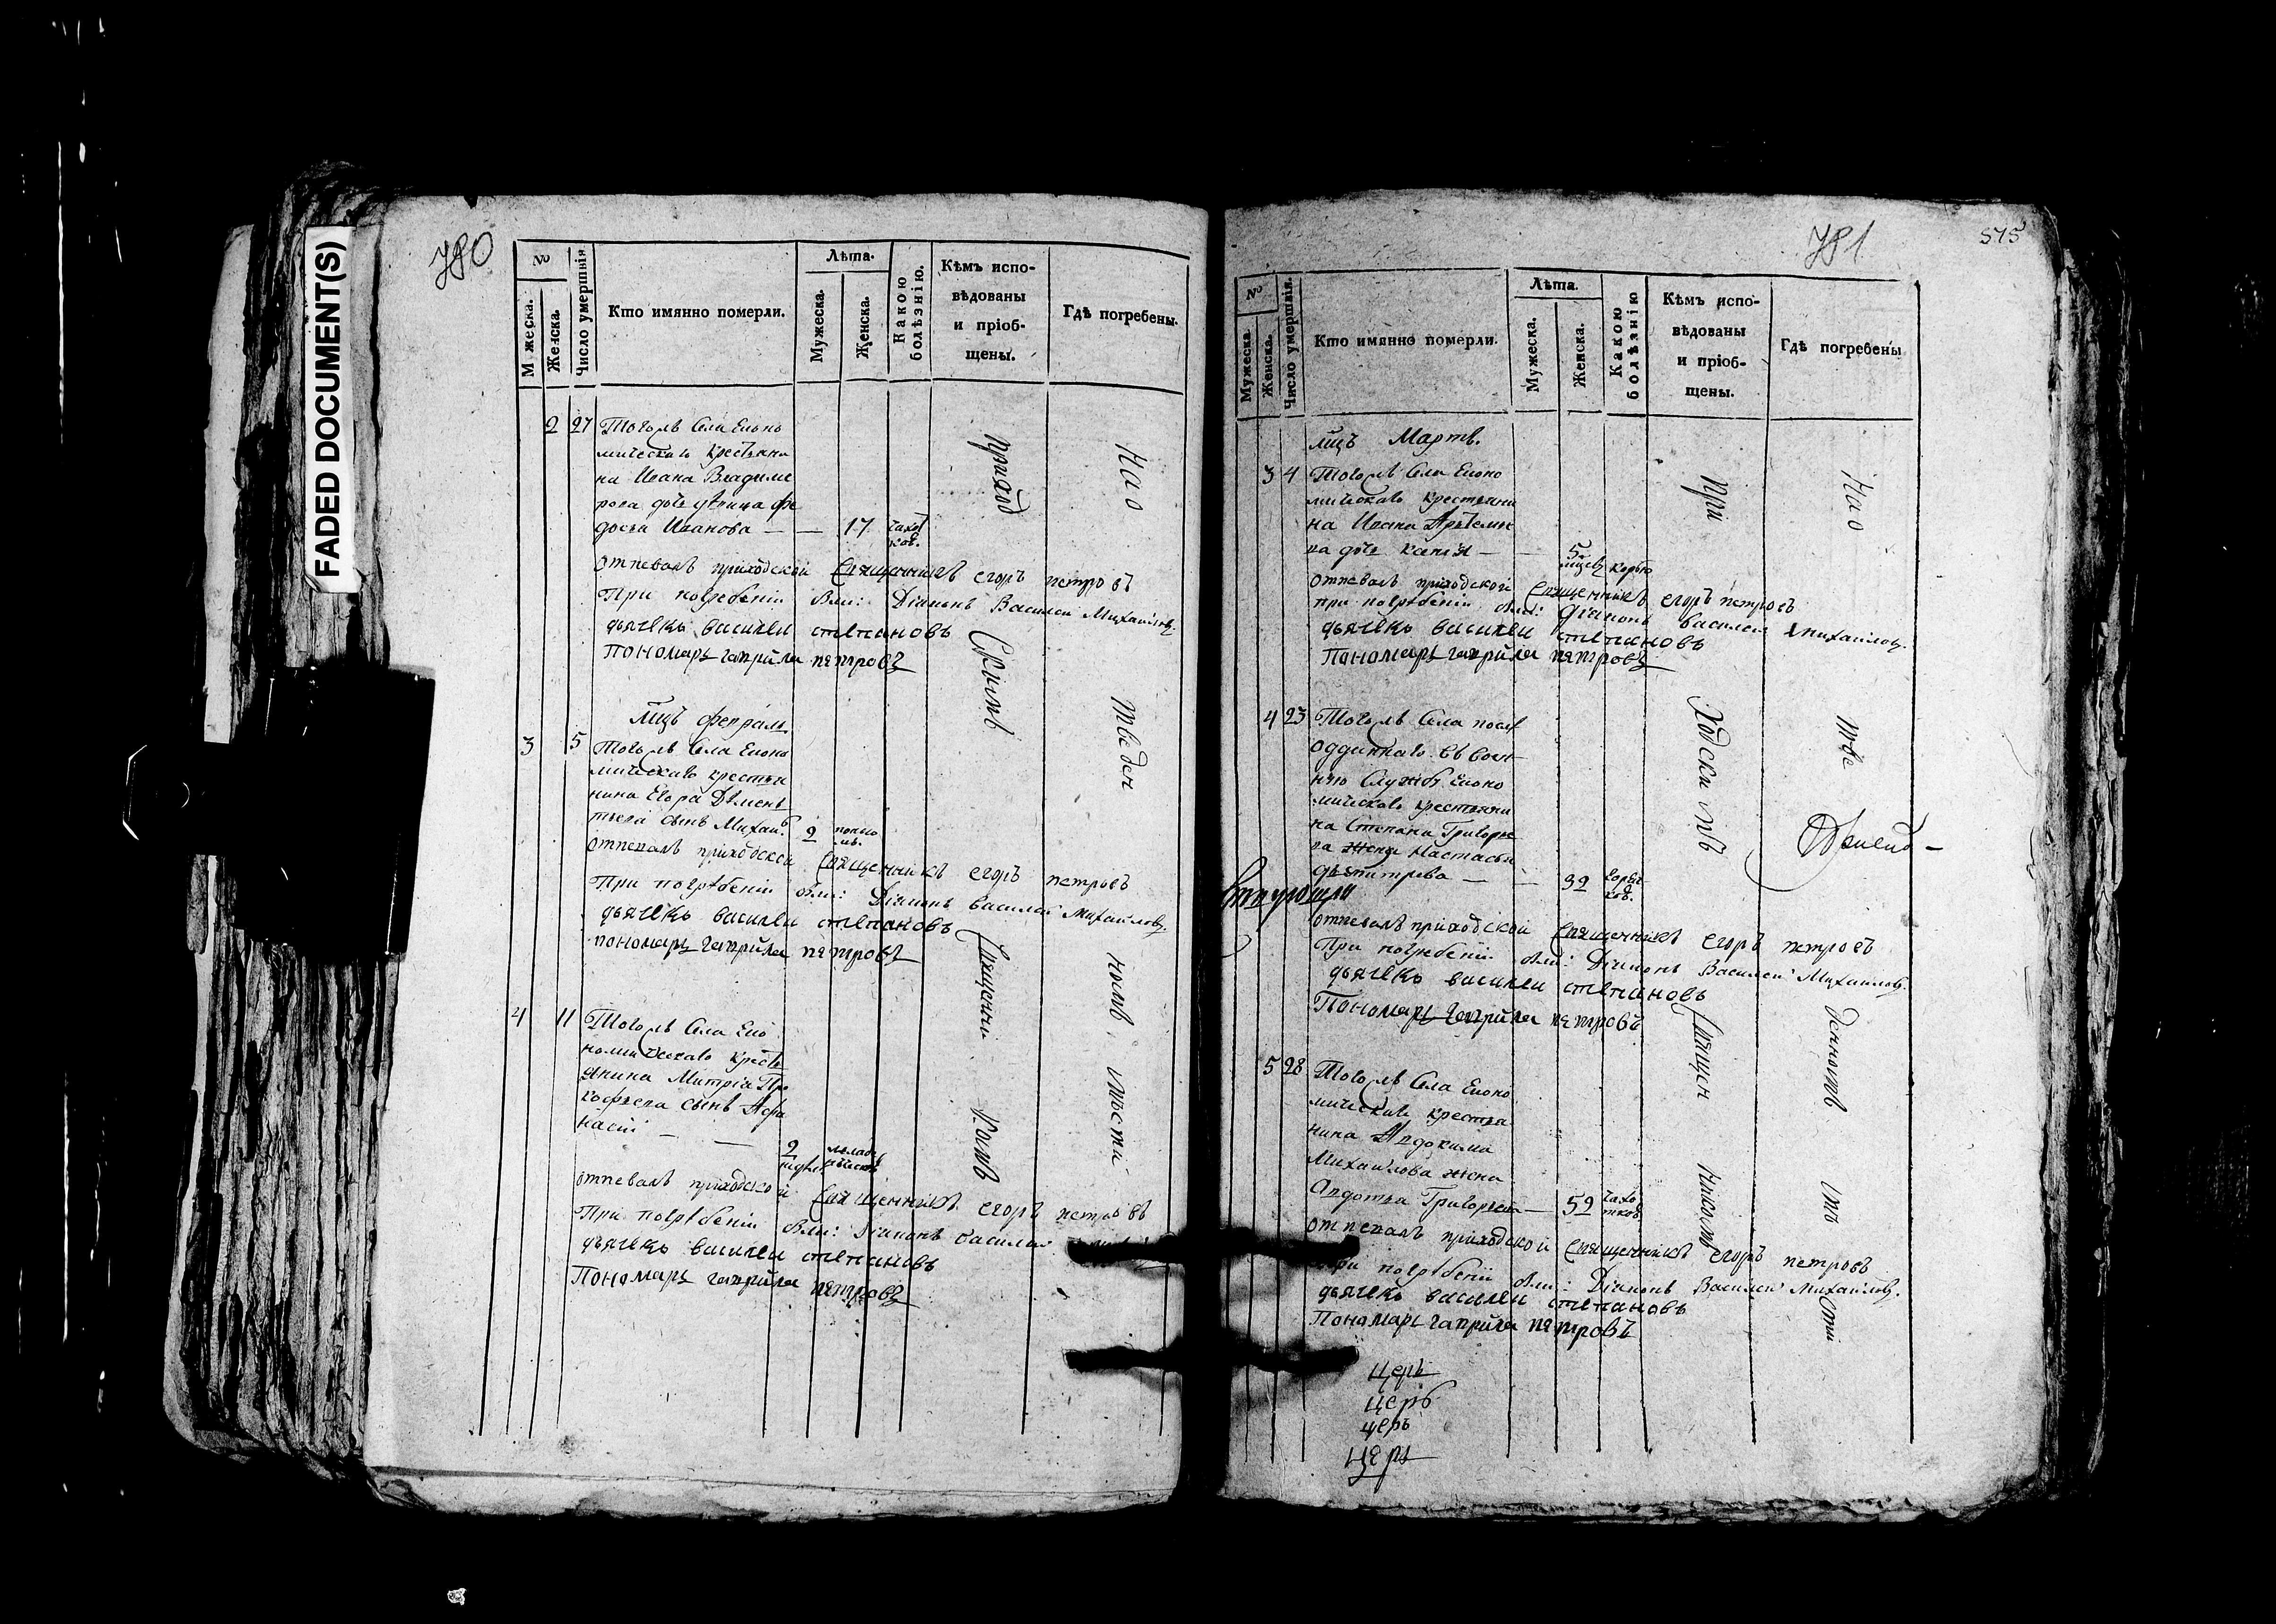 FADED DOCUMENT(S)
780
№
Мужеска.
Женска.
Число умершвія
Кто имянно померли.
Лѣта.
Мужеска.
Женска.
Какою болѣзнію.
Кѣмъ испо-
вѣдованы
и пріоб-
щены.
Гдѣ погребены.
2 27 Тогожъ Села Еконо
мическаго крестьяни
на Ивана Владиме
рова дочь девица Фе
досья Иванова — — 17 чахот
кою.
отпевалъ приходской Священникъ егоръ петровъ
При погребеніи были: Діаконъ Василей Михайловъ.
дьячекъ василеи степановъ
Пономарь гаврила петровъ
Мцъ февраль
3 5 Тогожъ Села Еконо
мическаго крестья
нина Егора Демень
тьева сынъ Михаил 2
отпевалъ приходской Священникъ егоръ петровъ
При погребеніи были: Діаконъ Василей Михайловъ.
дьячекъ василеи степановъ
пономарь гаврила петровъ
4 11 Тогожъ Села Еко
номическаго кресть
янина Митрія Про
кофьева сынъ Афа
насій — — 2
недел
отпевалъ приходской Священникъ егоръ петровъ
При погребеніи были: Діаконъ Василей
дьячекъ василеи степановъ
Пономарь гаврила петровъ
приход
Скимъ
Священни
комъ
На о
тведен
номъ
месте
781
575
№
Мужеска.
Женска.
Число умершвія.
Кто имянно померли.
Лѣта.
Мужеска.
Женска.
Какою болѣзнію
Кѣмъ испо-
вѣдованы
и пріоб-
щены.
Гдѣ погребены
Мцъ Мартъ.
3 4 Тогожъ Села Еконо
мическаго крестьяни
на Ивана Артемье
ва дочь Ксенія — 5
мцевъ корью
отпевалъ приходской Священникъ егоръ петровъ
при погребеніи были: Діаконъ Василей Михайловъ.
дьячекъ василеи степановъ
Пономарь гаврила петровъ
4 23 Тогожъ Села
отданнаго въ воен
ную Службу Еконо
мическаго крестьяни
на Степана Григорье
ва жена Настасья
дьмитрева — — 39 горяч
кою.
отпевалъ приходской Священникъ егоръ петровъ
При погребеніи были: Діаконъ Василей Михайловъ.
дьячекъ василеи степановъ
Пономарь гаврила петровъ
5 28 Тогожъ Села Еконо
мическаго крестья
нина Авдокима
Михайлова жена
Авдотья Григорьева — 59 чахо
ткою
отпевалъ приходской Священникъ егоръ петровъ
При погребеніи были: Діаконъ Василей Михайловъ.
дьячекъ василеи степановъ
Пономарь гаврила петровъ
При
ходскимъ
Священ
никомъ
На о
тве
денномъ
ме
сте
церь
церь
церь
церь